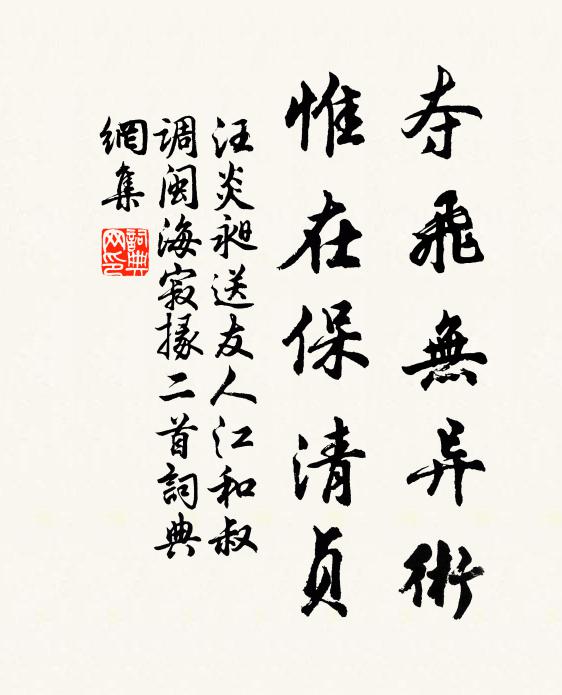 夺飛無异術
惟在保清貞
汪炎昶送友人江和叔
调闽海寂掾二首詞典
網集
詞典
网印